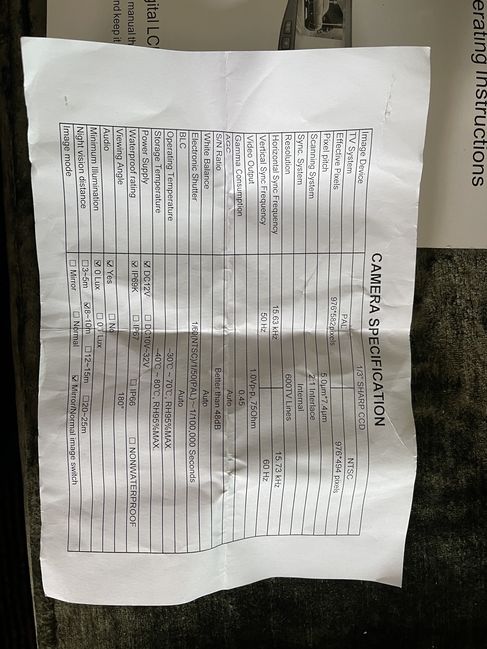 erating Instructions
gital LC
manual th
nd keep it
CAMERA SPECIFICATION
Image Device 1/3" SHARP CCD
TV System PAL NTSC
Effective Pixels 976*582pixels 976*494 pixels
Pixel pitch 5.0μm*7.4μm
Scanning System 2:1 Interlace
Sync. System Internal
Resolution 600TV Lines
Horizontal Sync Frequency 15.63 kHz 15.73 kHz
Vertical Sync Frequency 50 Hz 60 Hz
Video Output 1.0Vp-p, 75Ohm
Gamma Consumption 0.45
AGC Auto
S/N Ratio Better than 48dB
White Balance Auto
Electronic Shutter 1/60(NTSC)/1/50(PAL) ~ 1/100,000 Seconds
BLC Auto
Operating Temperature -30°C ~ 70°C, RH95%MAX.
Storage Temperature -40°C ~ 80°C, RH95%MAX.
Power Supply ☑ DC12V ☐ DC10V~32V
Waterproof rating ☑ IP69K ☐ IP67 ☐ IP66 ☐ NON\WATERPROOF
Viewing Angle 180°
Audio ☑ Yes ☐ No
Minimum Illumination ☑ 0 Lux ☐ 0.1 Lux
Night vision distance ☐3~5m ☑8~10m ☐12~15m ☐20~25m
Image mode ☐ Mirror ☐ Normal ☑ Mirror/Normal image switch